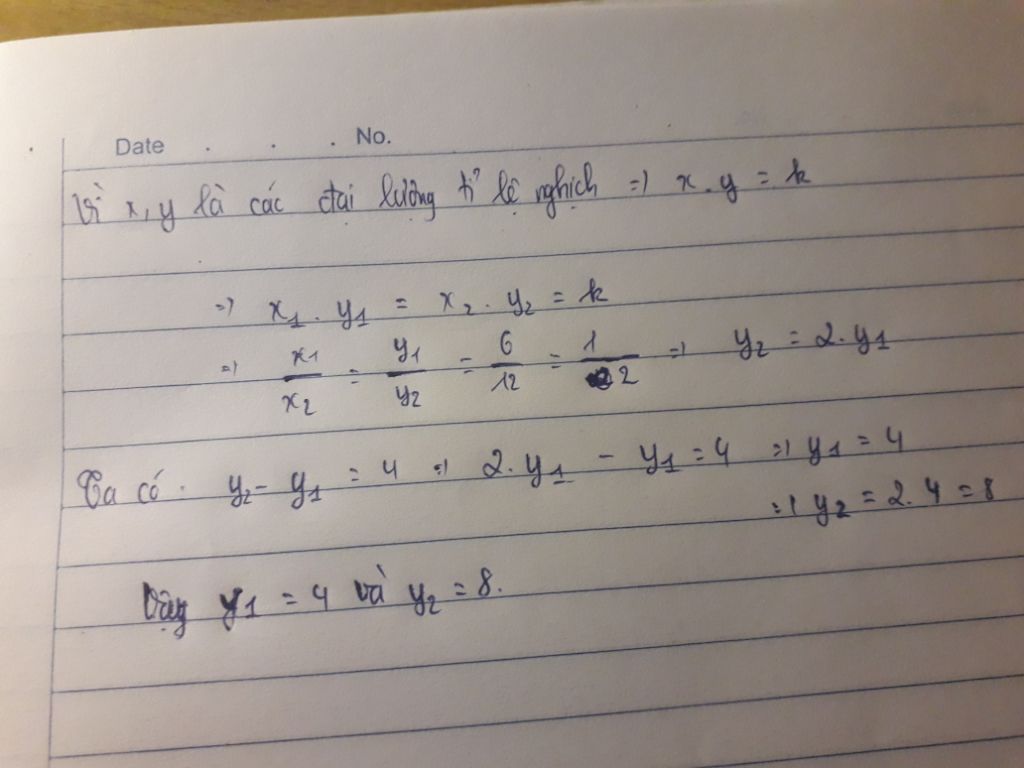 Date . . . No.
Vì x, y là các đại lượng tỉ lệ nghịch => x . y = k
=> x1 . y1 = x2 . y2 = k
=> x1/x2 = y1/y2 = 6/12 = 1/2 => y2 = 2 . y1
Ta có . y2 - y1 = 4 => 2 . y1 - y1 = 4 => y1 = 4
=> y2 = 2 . 4 = 8
Vậy y1 = 4 và y2 = 8.